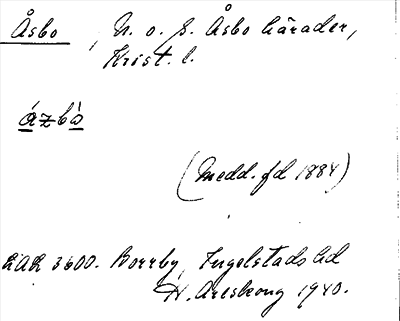 Åsbo, N. o. S. Åsbo härader,
Krist. l.
ázbò
(Medd. fd 1884)
LAL 3600. Borrby, Ingelstads hd
H. Areskoug 1940.